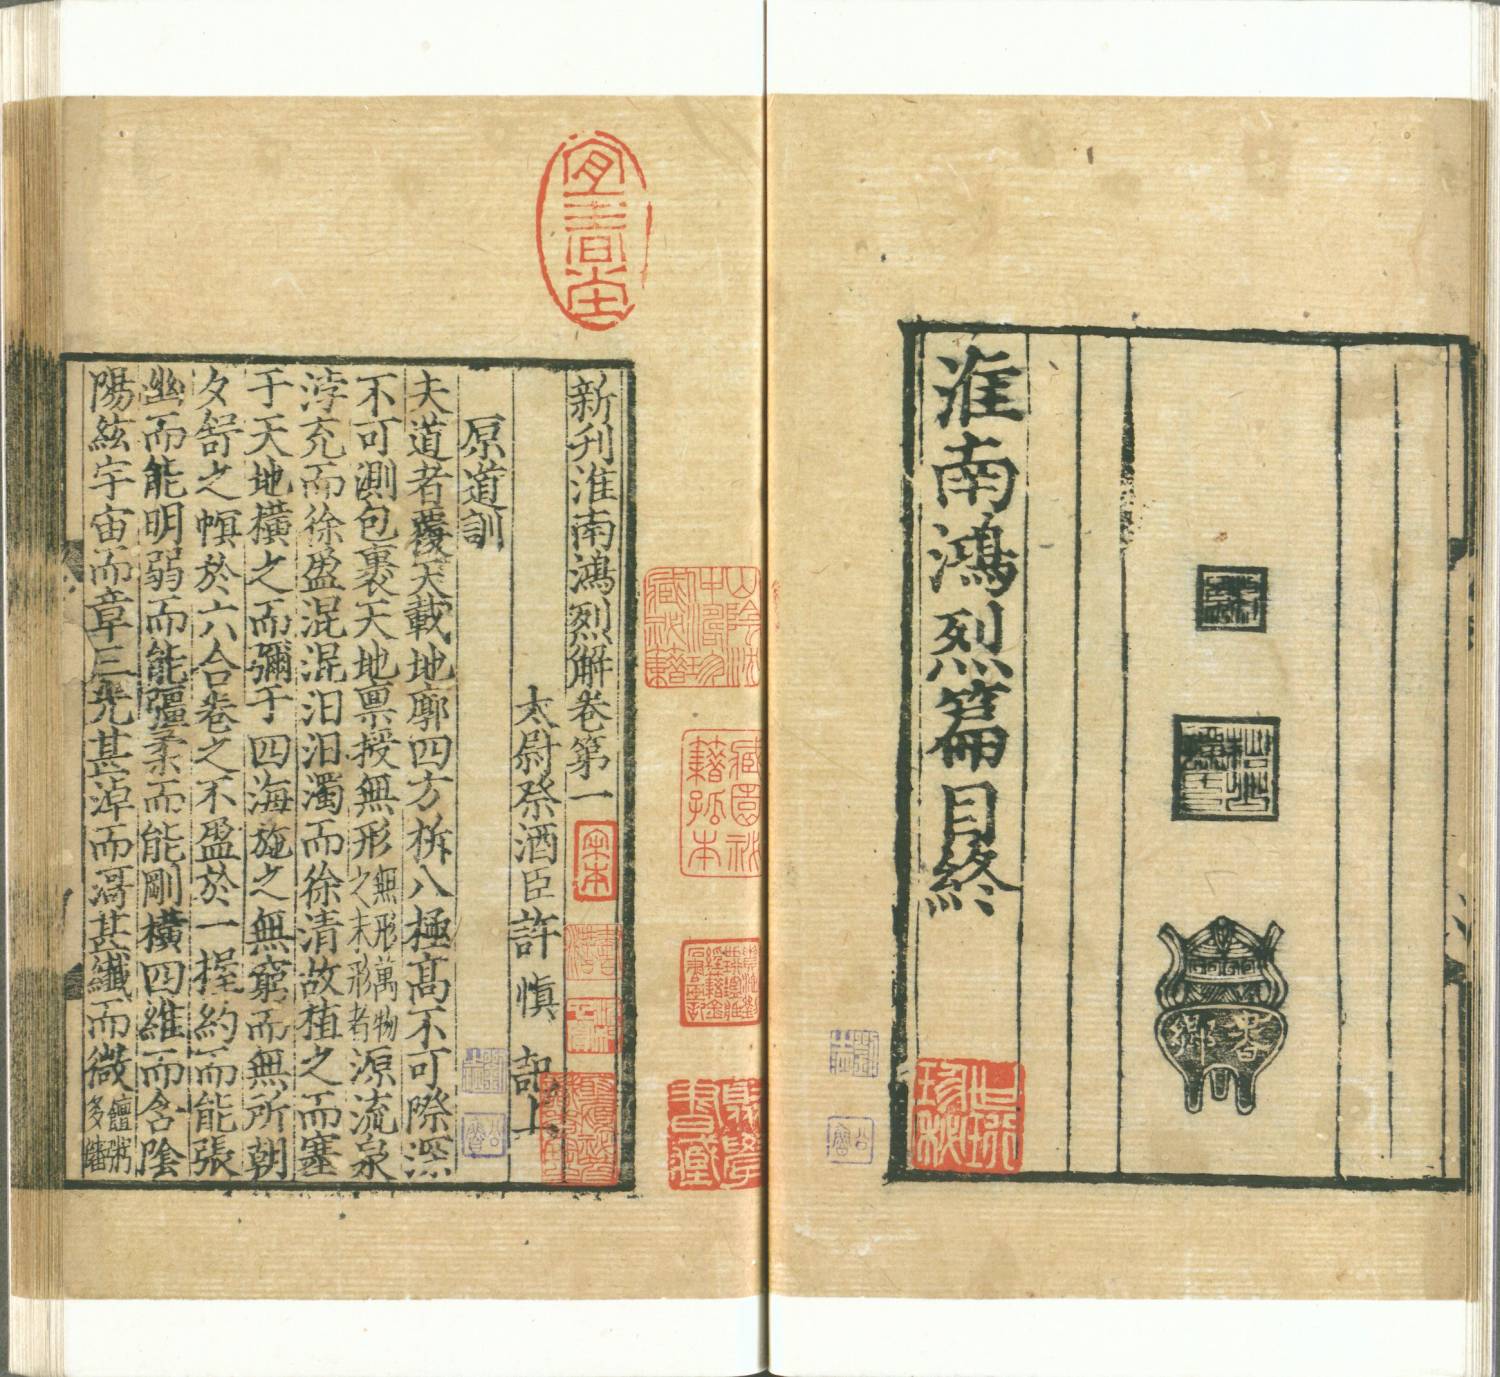 淮南鴻烈篇目終
新刊淮南鴻烈解卷第一
太尉祭酒臣許慎記上
原道訓
夫道者覆天載地廓四方柝八極高不可際深
不可測包裹天地禀授無形無形萬物之未形者源流泉
浡充而徐盈混混汩汩濁而徐清故植之而塞
于天地橫之而彌于四海施之無窮而無所朝
夕舒之幎於六合卷之不盈於一握約而能張
幽而能明弱而能彊柔而能剛橫四維而含陰
陽絃宇宙而章三光甚淖而滒甚纖而微饘粥多瀋
宜春堂
宋本
山陰沈仲濤珍藏秘籍
藏園秘籍孤本
聚學書藏
世珍珍秘